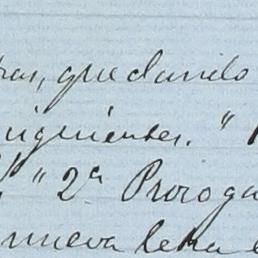 ras, quedando
siguientes. "
" 2ª Proroga
nueva letra e